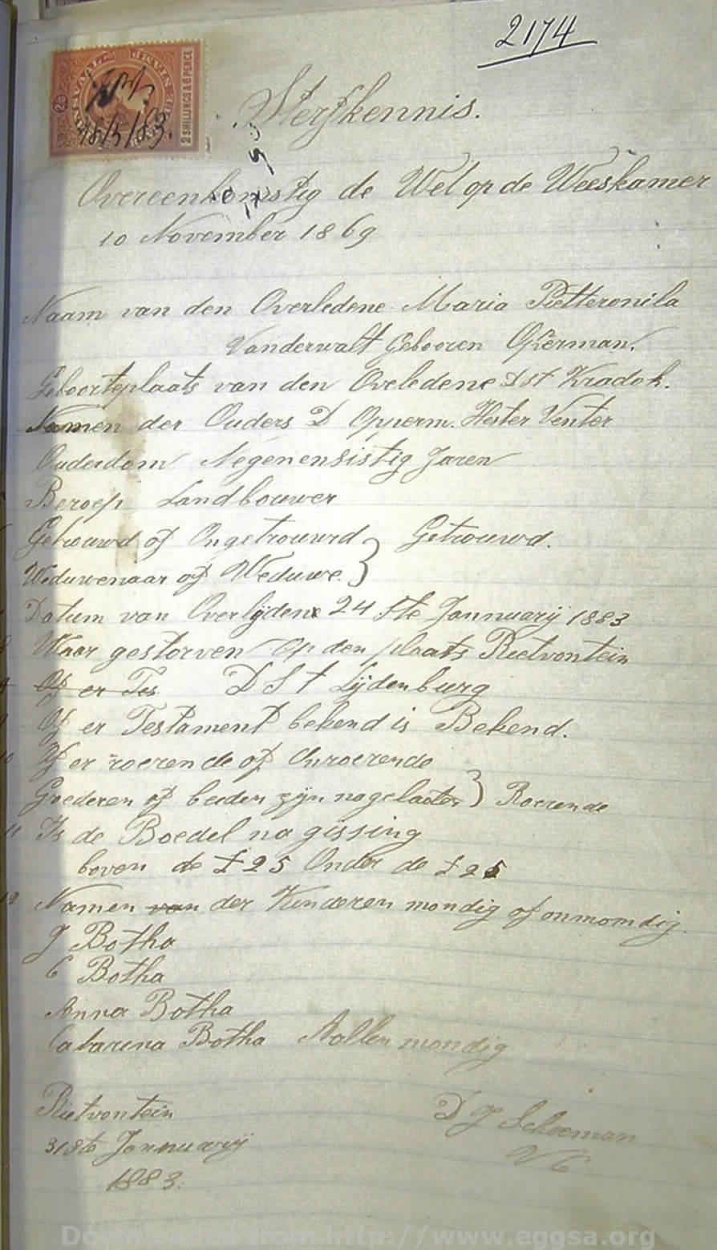 2174
TRANSVAAL
2 SHILLINGS & 6 PENCE
18/5/83.
Sterfkennis.
Overeenkomstig de Wet op de Weeskamer
10 November 1869
Naam van den Overledene Maria Petteronila
Vanderwalt Gebooren Operman.
Geboorteplaats van den Oveledene Dst Kradok.
Namen der Ouders D Opperm. Hester Venter
Ouderdom Negenensistig Jaren
Beroep Landbouwer
Getrouwd of Ongetrouwd } Getrouwd.
Weduwenaar of Weduwe }
Datum van Overlijden 24 ste Jannuarij 1883
8 Waar gestorven Op den plaats Rietvontein
Of er Tes D St Lijdenburg
9 Of er Testament bekend is Bekend.
10 Of er roerende of Onroerende
Goederen of beeden zijn nagelaaten } Roerende
11 Is de Boedel na gissing
boven de £25 Onder de £25
12 Namen van der Kinderen mondig of onmomdig.
J Botha
C Botha
Anna Botha
Catarina Botha Aallen mondig
Rietvontein
31ste Jannuarij
1883.
D J Schoeman
V C
Downloaded from http://www.eggsa.org